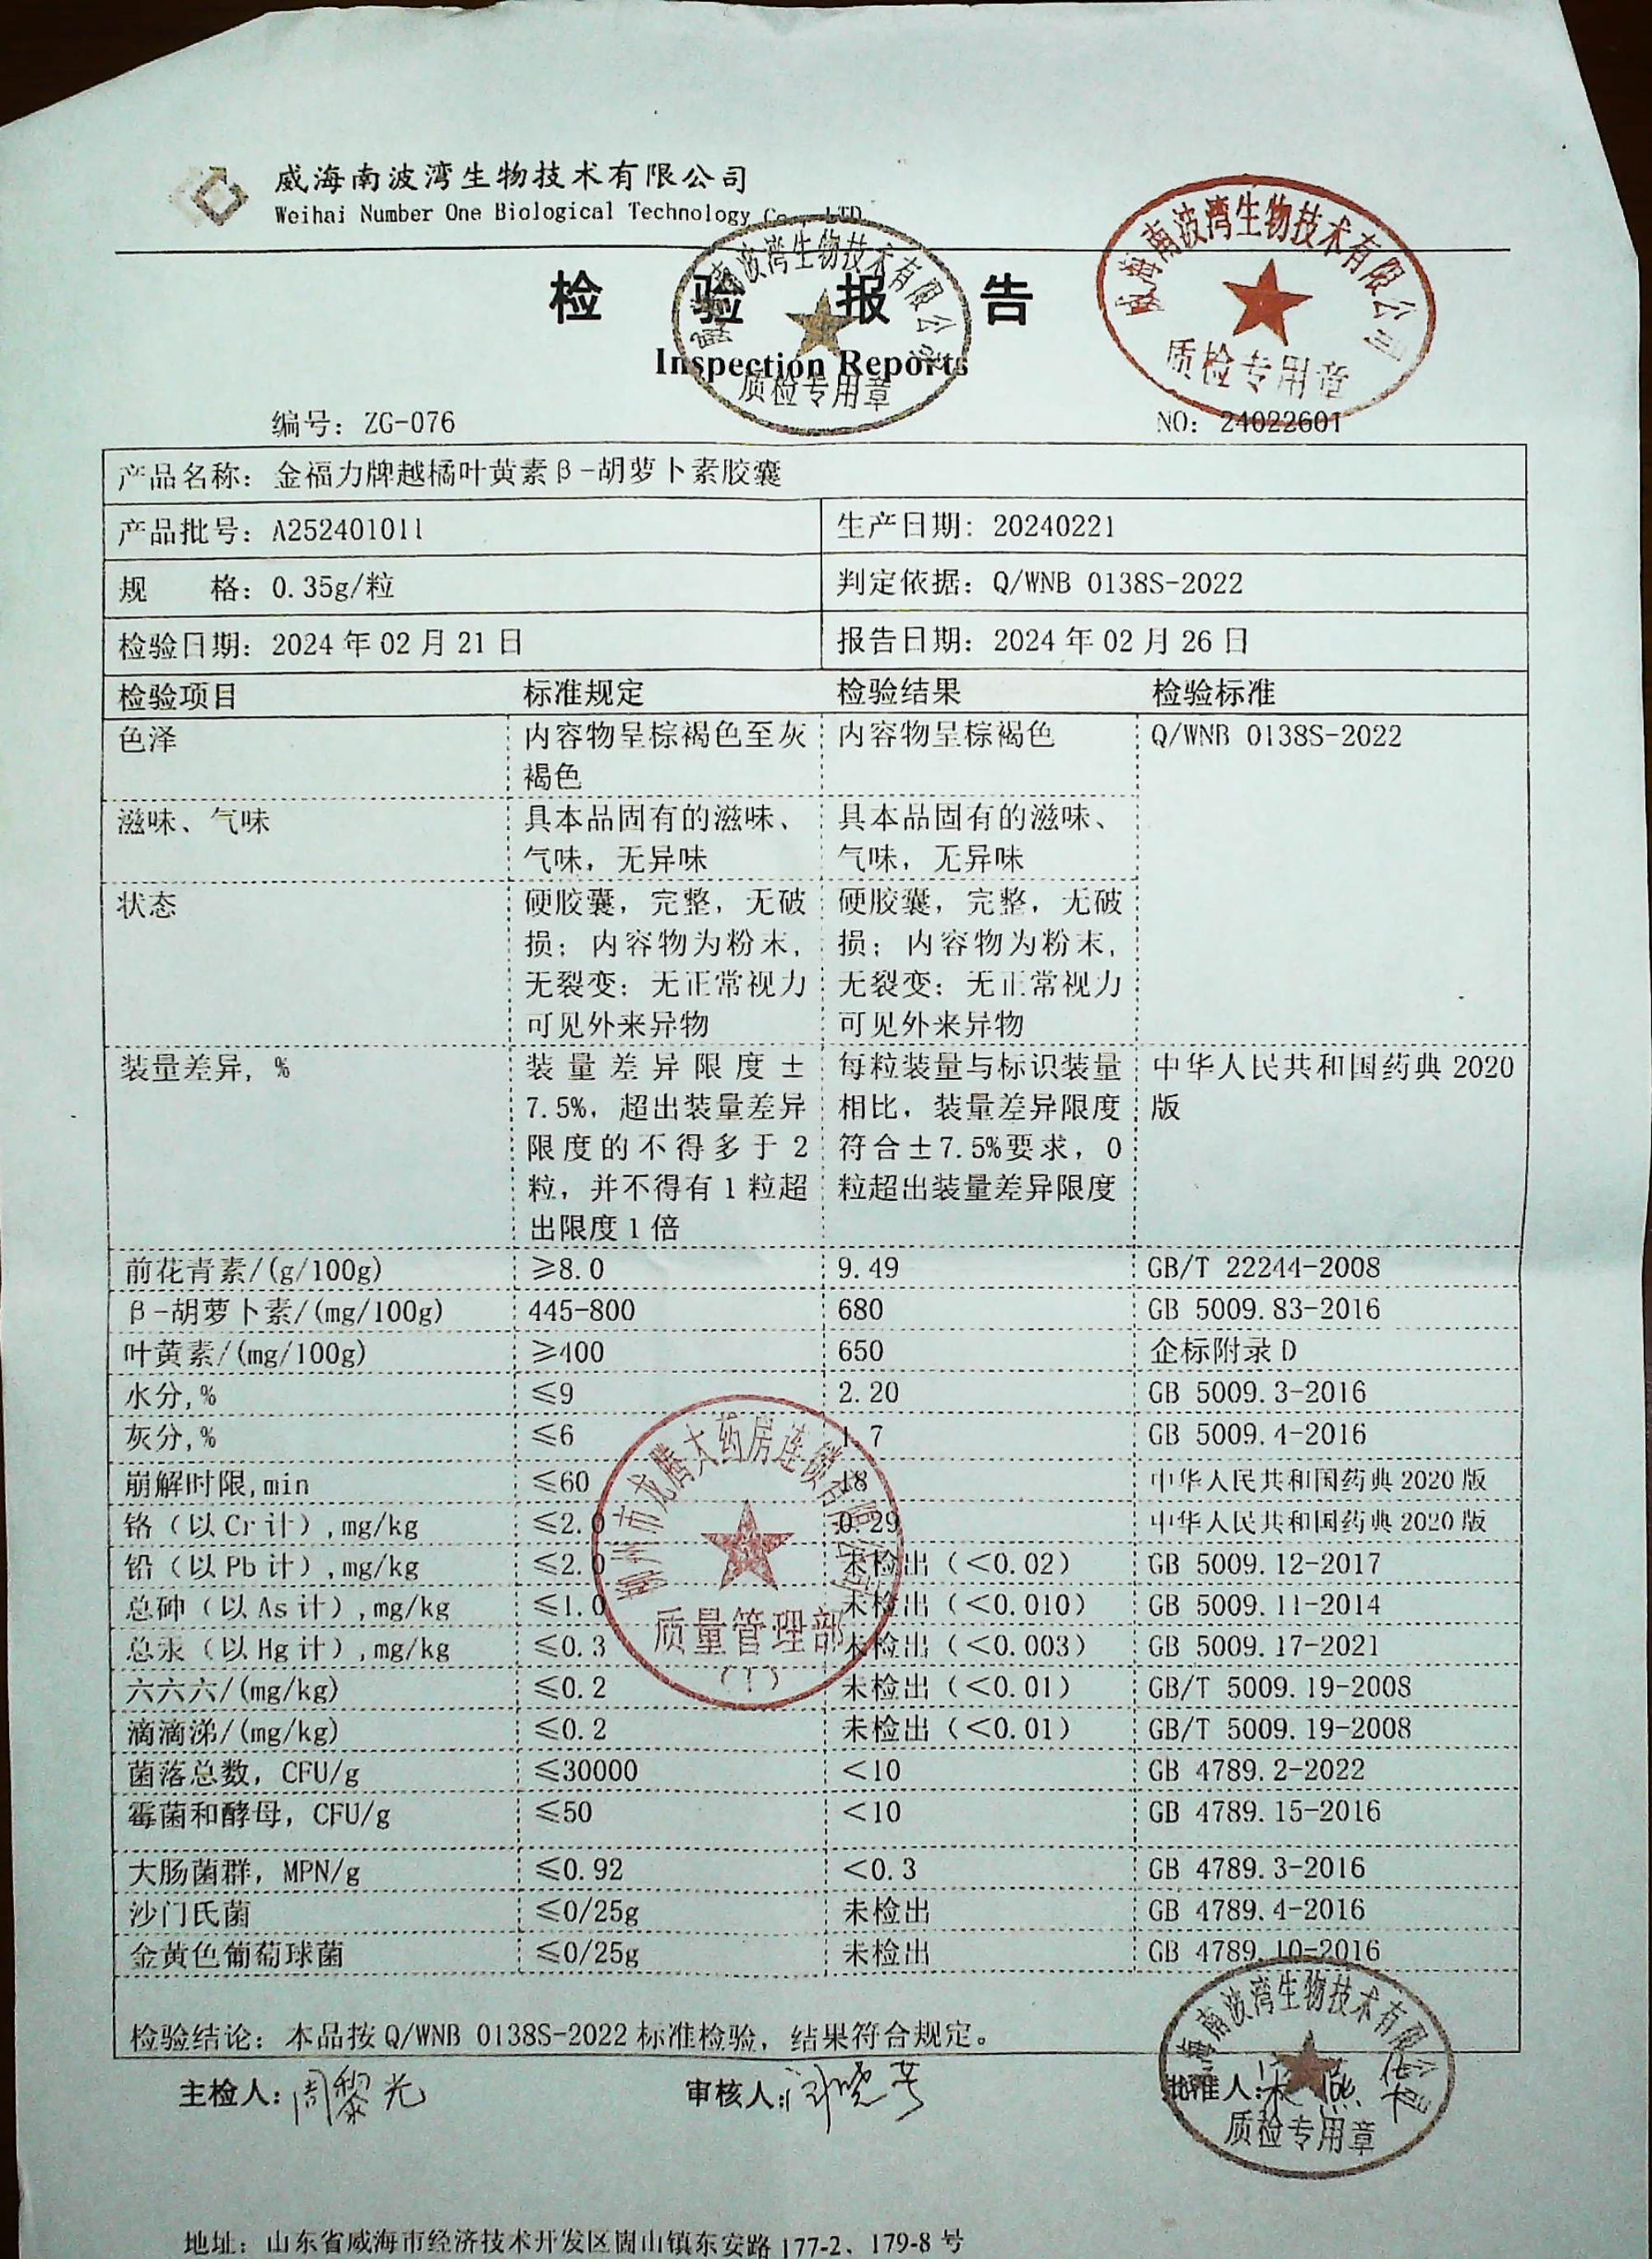 威海南波湾生物技术有限公司
Weihai Number One Biological Technology Co., LTD
检验报告
Inspection Reports
南波湾生物技术有限公司
质检专用章
威海南波湾生物技术有限公司
质检专用章
编号：ZG-076 NO：24022601
产品名称：金福力牌越橘叶黄素β-胡萝卜素胶囊
产品批号：A252401011 生产日期：20240221
规 格：0.35g/粒 判定依据：Q/WNB 0138S-2022
检验日期：2024年02月21日 报告日期：2024年02月26日
检验项目 标准规定 检验结果 检验标准
色泽 内容物呈棕褐色至灰 内容物呈棕褐色 Q/WNB 0138S-2022
褐色
滋味、气味 具本品固有的滋味、 具本品固有的滋味、
气味，无异味 气味，无异味
状态 硬胶囊，完整，无破 硬胶囊，完整，无破
损；内容物为粉末， 损；内容物为粉末，
无裂变；无正常视力 无裂变；无正常视力
可见外来异物 可见外来异物
装量差异，% 装量差异限度± 每粒装量与标识装量 中华人民共和国药典2020
7.5%，超出装量差异 相比，装量差异限度 版
限度的不得多于2 符合±7.5%要求，0
粒，并不得有1粒超 粒超出装量差异限度
出限度1倍
前花青素/(g/100g) ≥8.0 9.49 GB/T 22244-2008
β-胡萝卜素/(mg/100g) 445-800 680 GB 5009.83-2016
叶黄素/(mg/100g) ≥400 650 企标附录D
水分,% ≤9 2.20 GB 5009.3-2016
灰分,% ≤6 1.7 GB 5009.4-2016
崩解时限,min ≤60 18 中华人民共和国药典2020版
铬（以Cr计）,mg/kg ≤2.0 0.29 中华人民共和国药典2020版
铅（以Pb计）,mg/kg ≤2.0 未检出（<0.02） GB 5009.12-2017
总砷（以As计）,mg/kg ≤1.0 未检出（<0.010） GB 5009.11-2014
总汞（以Hg计）,mg/kg ≤0.3 未检出（<0.003） GB 5009.17-2021
六六六/(mg/kg) ≤0.2 未检出（<0.01） GB/T 5009.19-2008
滴滴涕/(mg/kg) ≤0.2 未检出（<0.01） GB/T 5009.19-2008
菌落总数，CFU/g ≤30000 <10 GB 4789.2-2022
霉菌和酵母，CFU/g ≤50 <10 GB 4789.15-2016
大肠菌群，MPN/g ≤0.92 <0.3 GB 4789.3-2016
沙门氏菌 ≤0/25g 未检出 GB 4789.4-2016
金黄色葡萄球菌 ≤0/25g 未检出 GB 4789.10-2016
柳州市龙腾大药房连锁有限
质量管理部
(1)
检验结论：本品按Q/WNB 0138S-2022标准检验，结果符合规定。
主检人：周黎光 审核人： 批准人：
海南波湾生物技术有限公司
质检专用章
地址：山东省威海市经济技术开发区崮山镇东安路177-2、179-8号